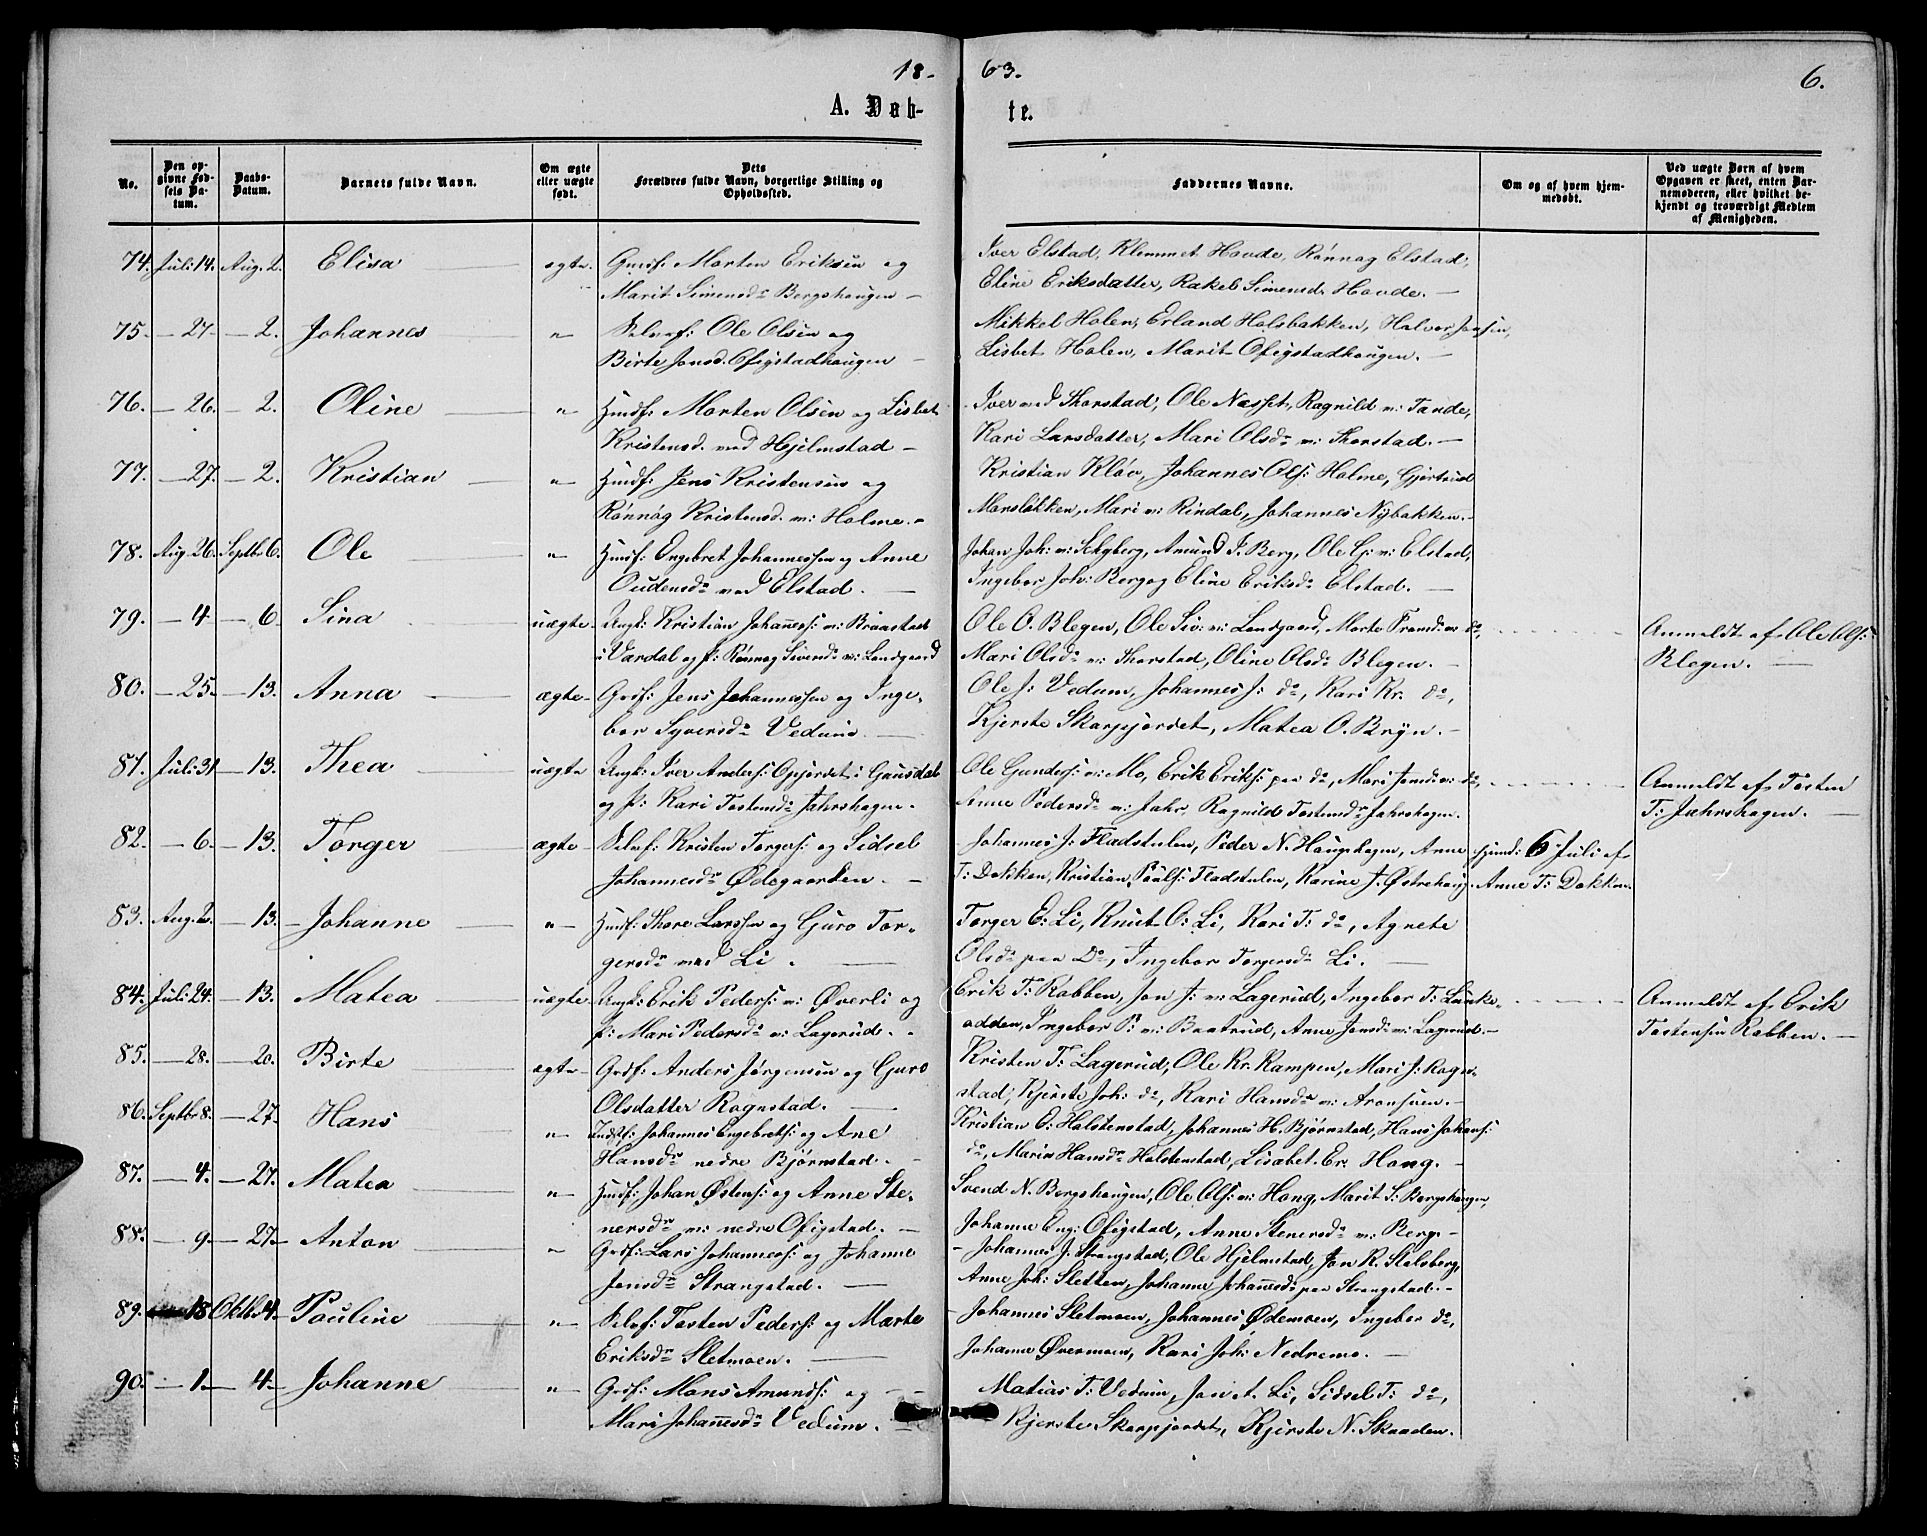 18-
63.
6.
A. Døb-
te.
No.
Den op-
givne Fød-
sels Da-
tum.
Daabs-
Datum.
Barnets fulde Navn.
Om ægte
eller uægte
født.
Dets
Forældres fulde Navn, borgerlige Stilling og
Opholdssted.
Faddernes Navne.
Om og af hvem hjem-
medøbt.
Ved uægte Børn af hvem
Opgaven er skeet, enten Bar-
nemoderen, eller hvilket be-
kjendt og troværdigt Medlem
af Menigheden.
74. Juli 14. Aug. 2. Elisa — ægte. Gmdsf: Morten Eriksen og
Marit Simensdr Bergshaugen —
Iver Elstad, Klemmet Hovde, Rønnog Elstad,
Eline Eriksdatter, Rakel Simensd. Hovde. —
75. — 27. — 2. Johannes — " — Selvf: Ole Olsen og
Birte Jonsd. Ofigstadhaugen —
Mikkel Holen, Erland Holsbakken, Halvor Jonsen,
Lisbet Holen, Marit Ofigstadhaugen. —
76. — 26. — 2. Oline — " Husf: Morten Olsen og Lisbet
Kristensd. ved Hjelmstad —
Iver ved Thorstad, Ole Næsset, Ragnild v: Tande,
Kari Larsdatter, Mari Olsdr v: Thorstad. —
77. — 27. — 2. Kristian — " — Husf: Jens Kristensen og
Rønnog Kristensd. v: Holme. —
Kristian Kløv, Johannes Ols: Holme, Gjertrud
Morsløkken, Mari v: Rindal, Johannes Nybakken. —
78. Aug. 26. Septbr 6. Ole — " Husf: Engebret Johannessen og Anne
Oudensdr ved Elstad. —
Johan Joh: v: Schyberg, Amund J. Berg, Ole G: v: Elstad,
Ingebor Joh: Berg og Eline Eriksdr Elstad. —
79. — 4. — 6. Sina — uægte. Ungk: Kristian Johanness: v: Braastad
i Vardal og P: Rønnog Sivensdr v: Landgaard
Ole O. Blegen, Ole Siv: v: Landgaard, Marte Framd: v: do,
Mari Olsdr v: Thorstad, Oline Olsdr Blegen. —
Anmeldt af Ole Ols:
Blegen. —
80. — 25. — 13. Anna — ægte — Grdf: Jens Johannessen og Inge-
bor Syversdr Vedum. —
Ole J: Vedum, Johannes J: do, Kari Kr. do,
Kjerste Skarpjordet, Matea O. Bryn. —
81. Juli 31 — 13. Thea — uægte Ungk: Iver Anders: Opjordet i Gausdal
og P: Kari Tostensdr Jahrshagen.
Ole Gunders: v: Mo, Erik Eriks: paa do, Mari Jonsd: v: do,
Anne Pedersdr v: Jahr, Ragnild Tostensdr Jahrshagen.
Anmeldt af Tosten
T: Jahrshagen. —
82. — 6. — 13. Torger — ægte — Selvf: Kristen Torgers: og Sidsel
Johannesdr Ødegaarden. —
Johannes J. Fladstulen, Peder N. Haugehagen, Anne
T: Dokken, Kristian Pouls: Fladstulen, Karine J. Østrehaug.
Hjemd: 6 Juli af
Anne T: Dokken.
83. Aug. 2. — 13. — Johanne — " — Husf: Thore Larssen og Guro Tor-
gersdr ved Li. —
Torger E: Li, Knut O: Li, Kari T: do, Agnete
Olsdr paa Do, Ingebor Torgersdr Li. —
84. Juli 24. — 13. Matea — uægte — Ungk: Erik Peders: v: Øverli og
P: Mari Pedersdr v: Lagerud. —
Erik T: Rabben, Jon J: v: Lagerud, Ingebor T: Lunke-
odden, Ingebor P: v: Baatrud, Anne Jonsd: v: Lagerud. —
Anmeldt af Erik
Tostensen Rabben. —
85. — 28. — 20. Birte — ægte — Grdf: Anders Jørgensen og Guro
Olsdatter Rognstad. —
Kristen T: Lagerud, Ole Kr. Kampen, Mari J: Rogn-
stad, Kjerste Joh: do, Kari Hansdr v: Aronsveen. —
86. Septbr 8. — 27. Hans — " — Indstf: Johannes Engebrets: og Ane
Hansdr nedre Bjørnstad. —
Kristian O: Halstenstad, Johannes H. Bjørnstad, Hans Johans:
do, Marie Hansdr Halstenstad, Lisabet Er. Hong. —
87. — 4. — 27. Matea — " — Husf: Johan Østens: og Anne Ste-
nersdr v: nedre Ofigstad. —
Svend N. Bergshaugen, Ole Ols: v: Hong, Marit S: Bergshaugen,
Johanne Eng: Ofigstad, Anne Stenersdr v: Berg. —
88. — 9. — 27. Anton — " Grdf: Lars Johanness: og Johanne
Jensdr Strangstad. —
Johannes J. Strangstad, Ole Hjelmstad, Jon R. Stalsberg,
Anne Joh: Sletten, Johanne Johannesdr paa Strangstad. —
89. — 18 Oktbr 4. Pauline — " — Selvf: Tosten Peders: og Marte
Eriksdr Sletmoen. —
Johannes Sletmoen, Johannes Ødemoen, Ingebor do,
Johanne Øvermoen, Kari Joh: Nedremo. —
90. — 1. — 4. Johanne — " — Grdf: Mons Amunds: og
Mari Johannesdr Vedum. —
Matias T: Vedum, Jon A. Li, Sidsel T: do,
Kjerste Skarpjordet, Kjerste N. Skaaden.